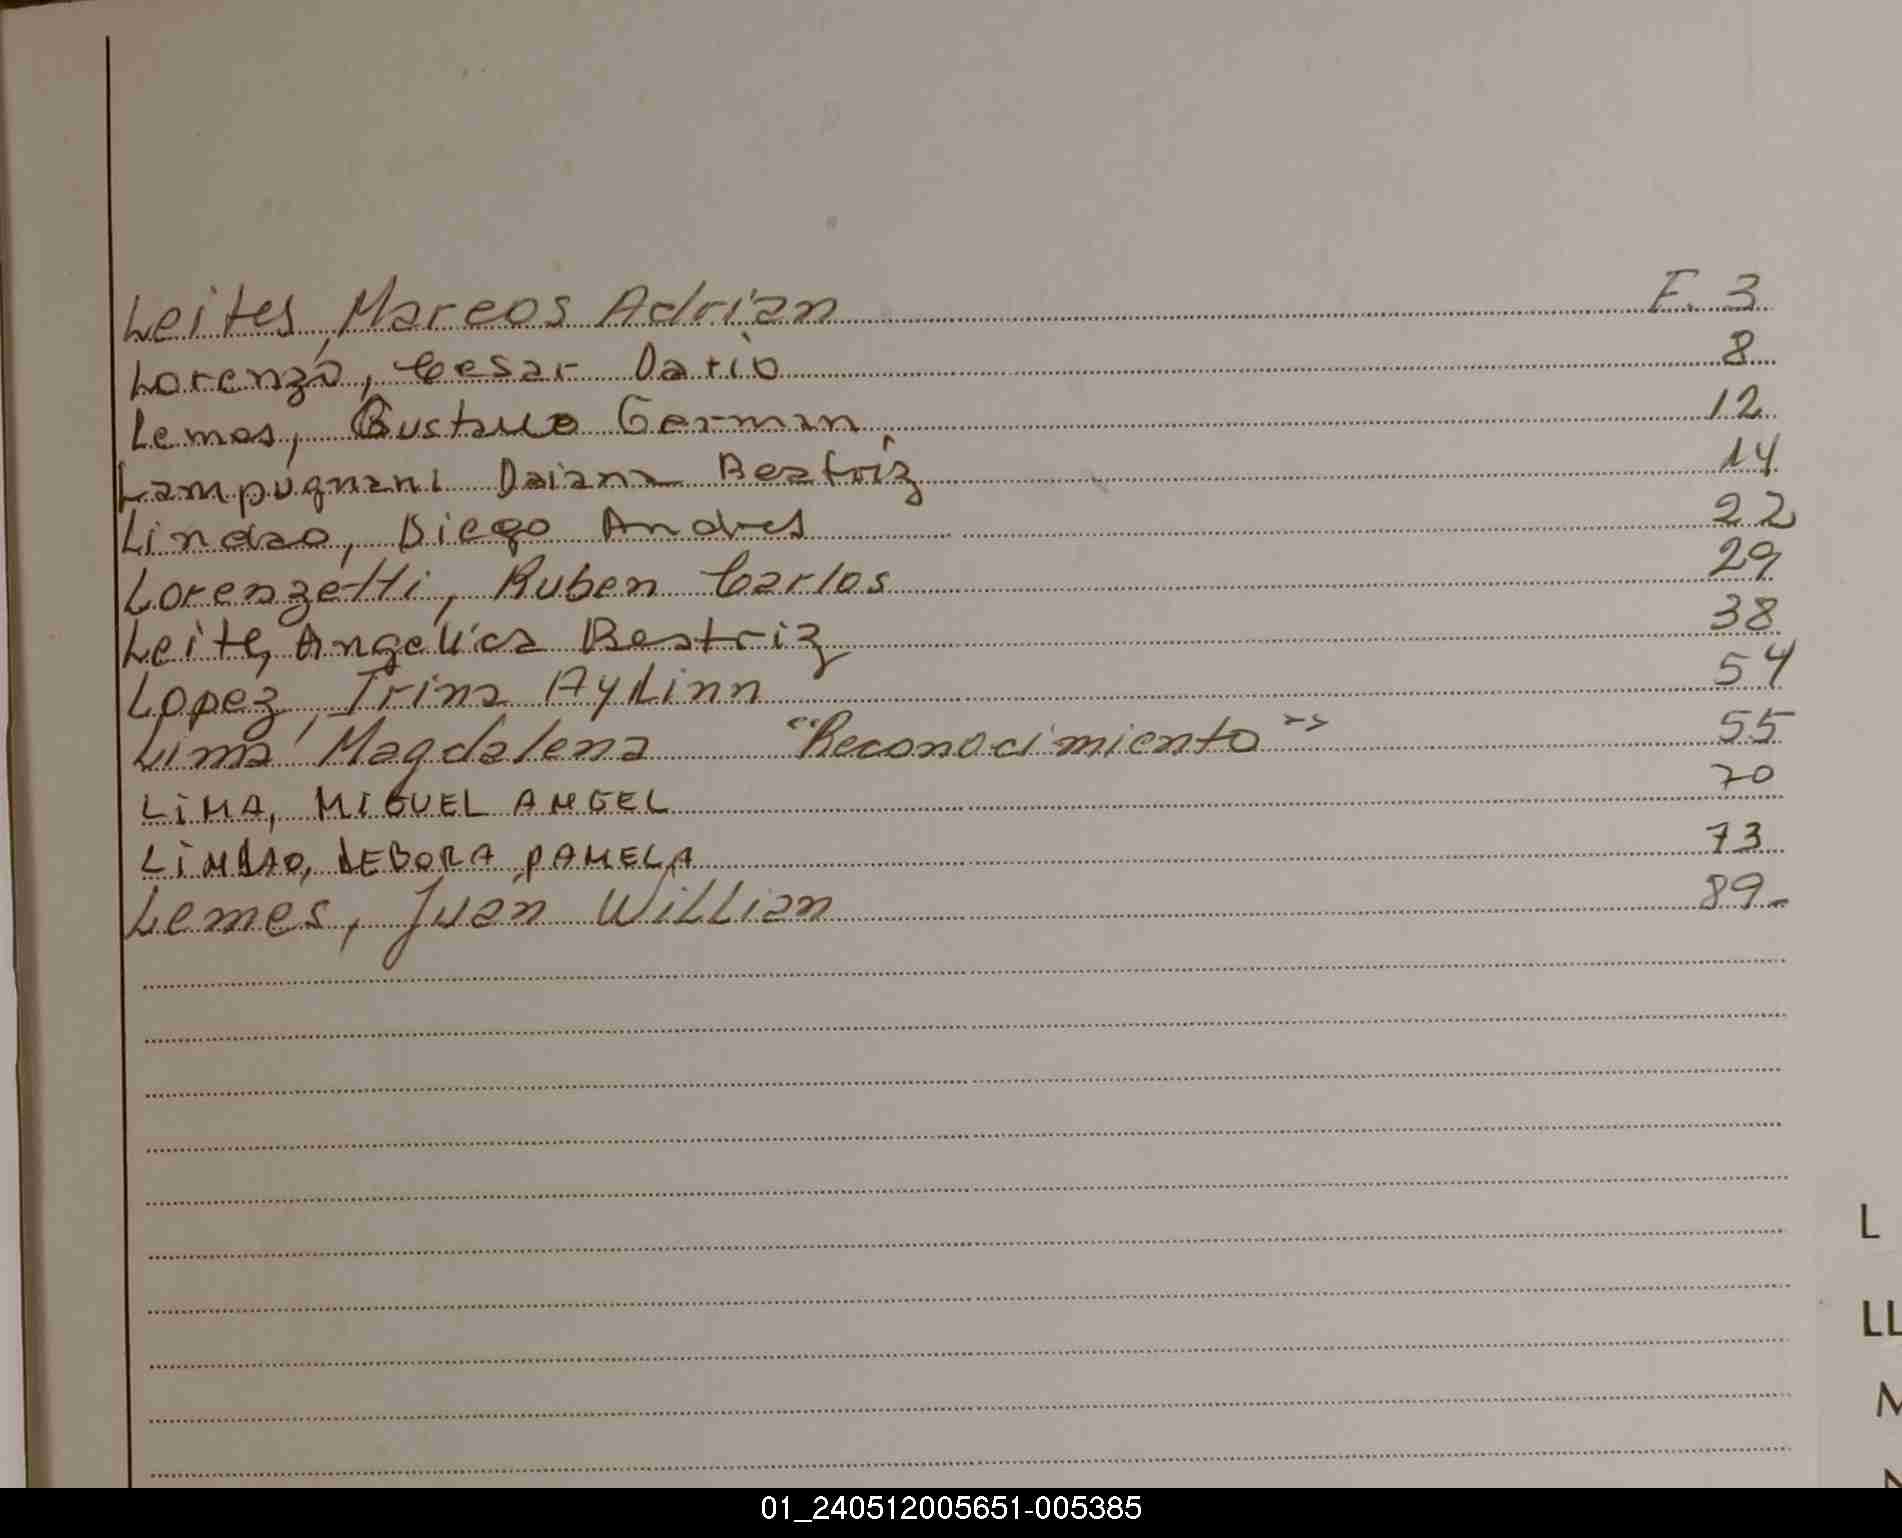 Leites, Marcos Adrian F. 3
Lorenzo, Cesar Dario 8
Lemos, Gustavo German 12
Lampugnani Daiana Beatriz 14
Lindao, Diego Andres 22
Lorenzetti, Ruben Carlos 29
Leite, Angelica Beatriz 38
Lopez, Irina Aylinn 54
Lima, Magdalena "Reconocimiento" 55
LIMA, MIGUEL ANGEL 70
LINDAO, DEBORA PAMELA 73
Lemes, Juan Willian 89-
L
LL
M
N
01_240512005651-005385